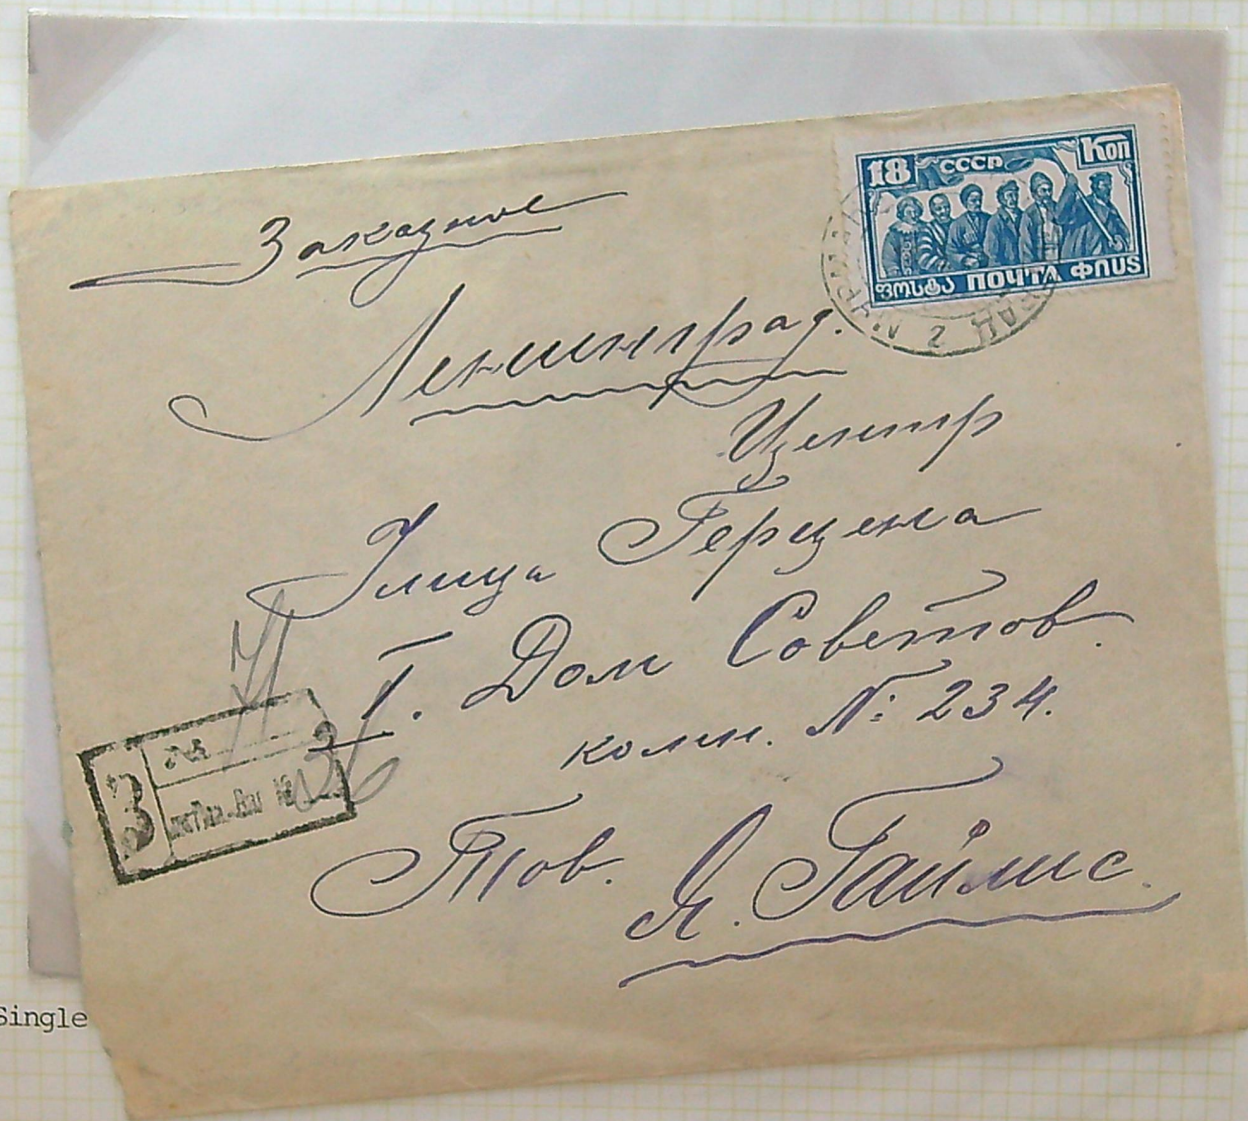 18 СССР Коп
ფოსტა ПОЧТА ФПUS
Заказное
Ленинград.
Центр
Улица Герцена
1. Дом Советов.
комн. №: 234.
Тов. Я. Гайлис.
З
№
Single